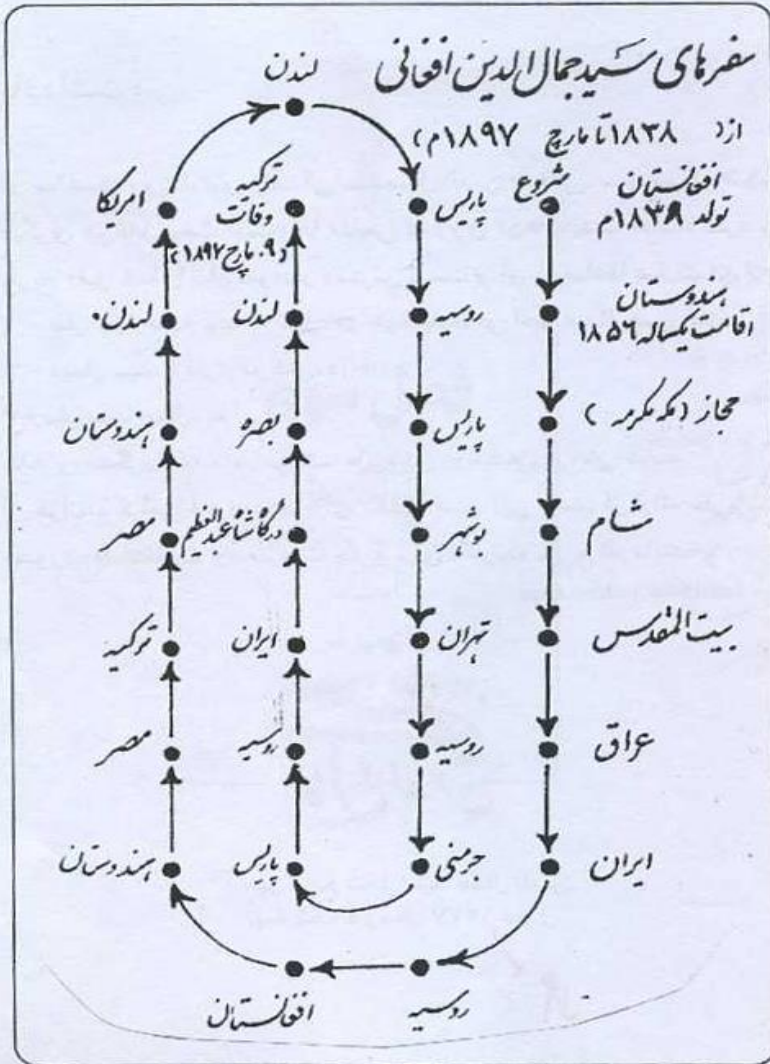 سفرهای سید جمال الدین افغانی
از (۱۸۳۸ تا مارچ ۱۸۹۷م)
شروع
افغانستان
تولد ۱۸۳۸م
هندوستان
اقامت یکساله ۱۸۵۶
حجاز (مکه مکرمه)
شام
بیت المقدس
عراق
ایران
روسیه
افغانستان
هندوستان
مصر
ترکیه
مصر
هندوستان
لندن
امریکا
لندن
پاریس
روسیه
پاریس
بوشهر
تهران
روسیه
جرمنی
پاریس
روسیه
ایران
درگاه شاه عبدالعظیم
بصره
لندن
ترکیه
وفات
(۹. مارچ ۱۸۹۷)